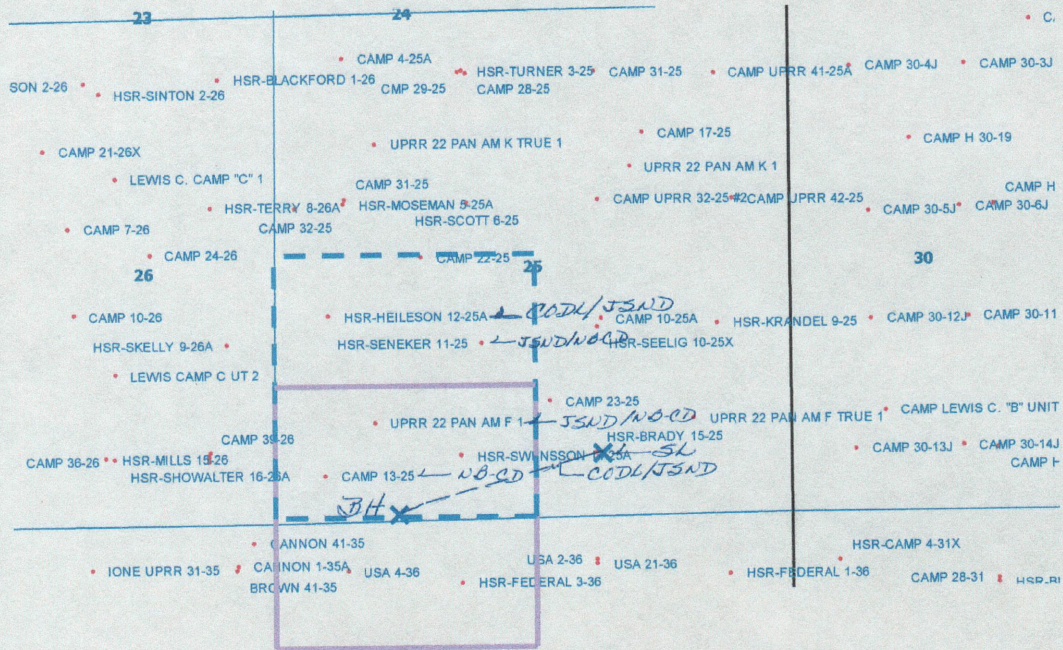 23
24
C.
CAMP 4-25A
SON 2-26
HSR-SINTON 2-26
HSR-BLACKFORD 1-26
HSR-TURNER 3-25
CAMP 31-25
CAMP UPRR 41-25A
CAMP 30-4J
CAMP 30-3J
CMP 29-25
CAMP 28-25
CAMP 17-25
CAMP H 30-19
CAMP 21-26X
UPRR 22 PAN AM K TRUE 1
UPRR 22 PAN AM K 1
LEWIS C. CAMP "C" 1
CAMP 31-25
CAMP H
HSR-TERRY 8-26A
HSR-MOSEMAN 5-25A
CAMP UPRR 32-25 #2
CAMP UPRR 42-25
CAMP 30-5J
CAMP 30-6J
CAMP 7-26
CAMP 32-25
HSR-SCOTT 6-25
CAMP 24-26
CAMP 22-25
26
25
30
CAMP 10-26
HSR-HEILESON 12-25A
CODL/JSND
CAMP 10-25A
HSR-KRANDEL 9-25
CAMP 30-12J
CAMP 30-11
HSR-SKELLY 9-26A
HSR-SENEKER 11-25
JSND/NB-CD
HSR-SEELIG 10-25X
LEWIS CAMP C UT 2
CAMP 23-25
UPRR 22 PAN AM F 1
JSND/NB-CD
UPRR 22 PAN AM F TRUE 1
CAMP LEWIS C. "B" UNIT
CAMP 39-26
HSR-BRADY 15-25
CAMP 30-13J
CAMP 30-14J
CAMP 36-26
HSR-MILLS 15-26
HSR-SWENSSON
25A
SL
CAMP H
HSR-SHOWALTER 16-26A
CAMP 13-25
NB-CD
CODL/JSND
BH
CANNON 41-35
HSR-CAMP 4-31X
IONE UPRR 31-35
CANNON 1-35A
USA 4-36
USA 2-36
USA 21-36
HSR-FEDERAL 1-36
CAMP 28-31
BROWN 41-35
HSR-FEDERAL 3-36